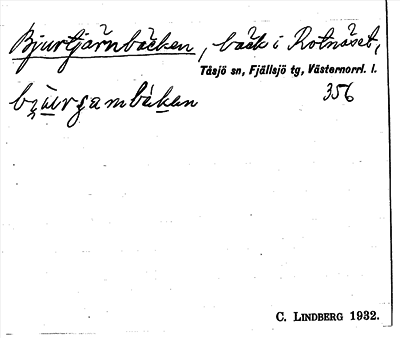 Bjurtjärnbäcken, bäck i Rotnäset,
Tåsjö sn, Fjällsjö tg, Västernorrl. l.
356
C. LINDBERG 1932.